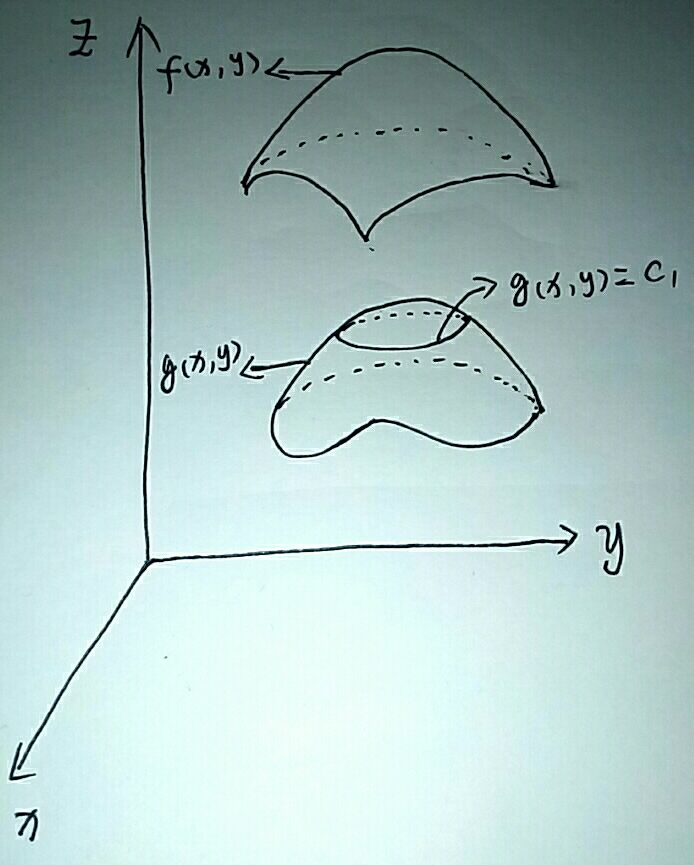 z
f(x,y)
g(x,y)=c₁
g(x,y)
y
x